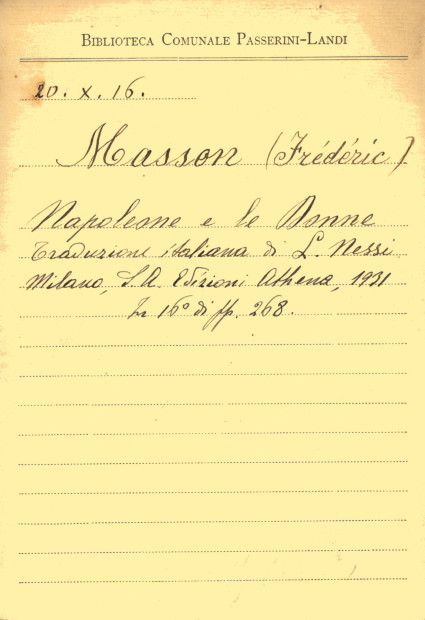 BIBLIOTECA COMUNALE PASSERINI-LANDI
20. X. 16.
Masson (Frédéric)
Napoleone e le Donne
Traduzione italiana di L. Nessi
Milano, S. A. Edizioni Athena, 1931
In 16° di pp. 268.